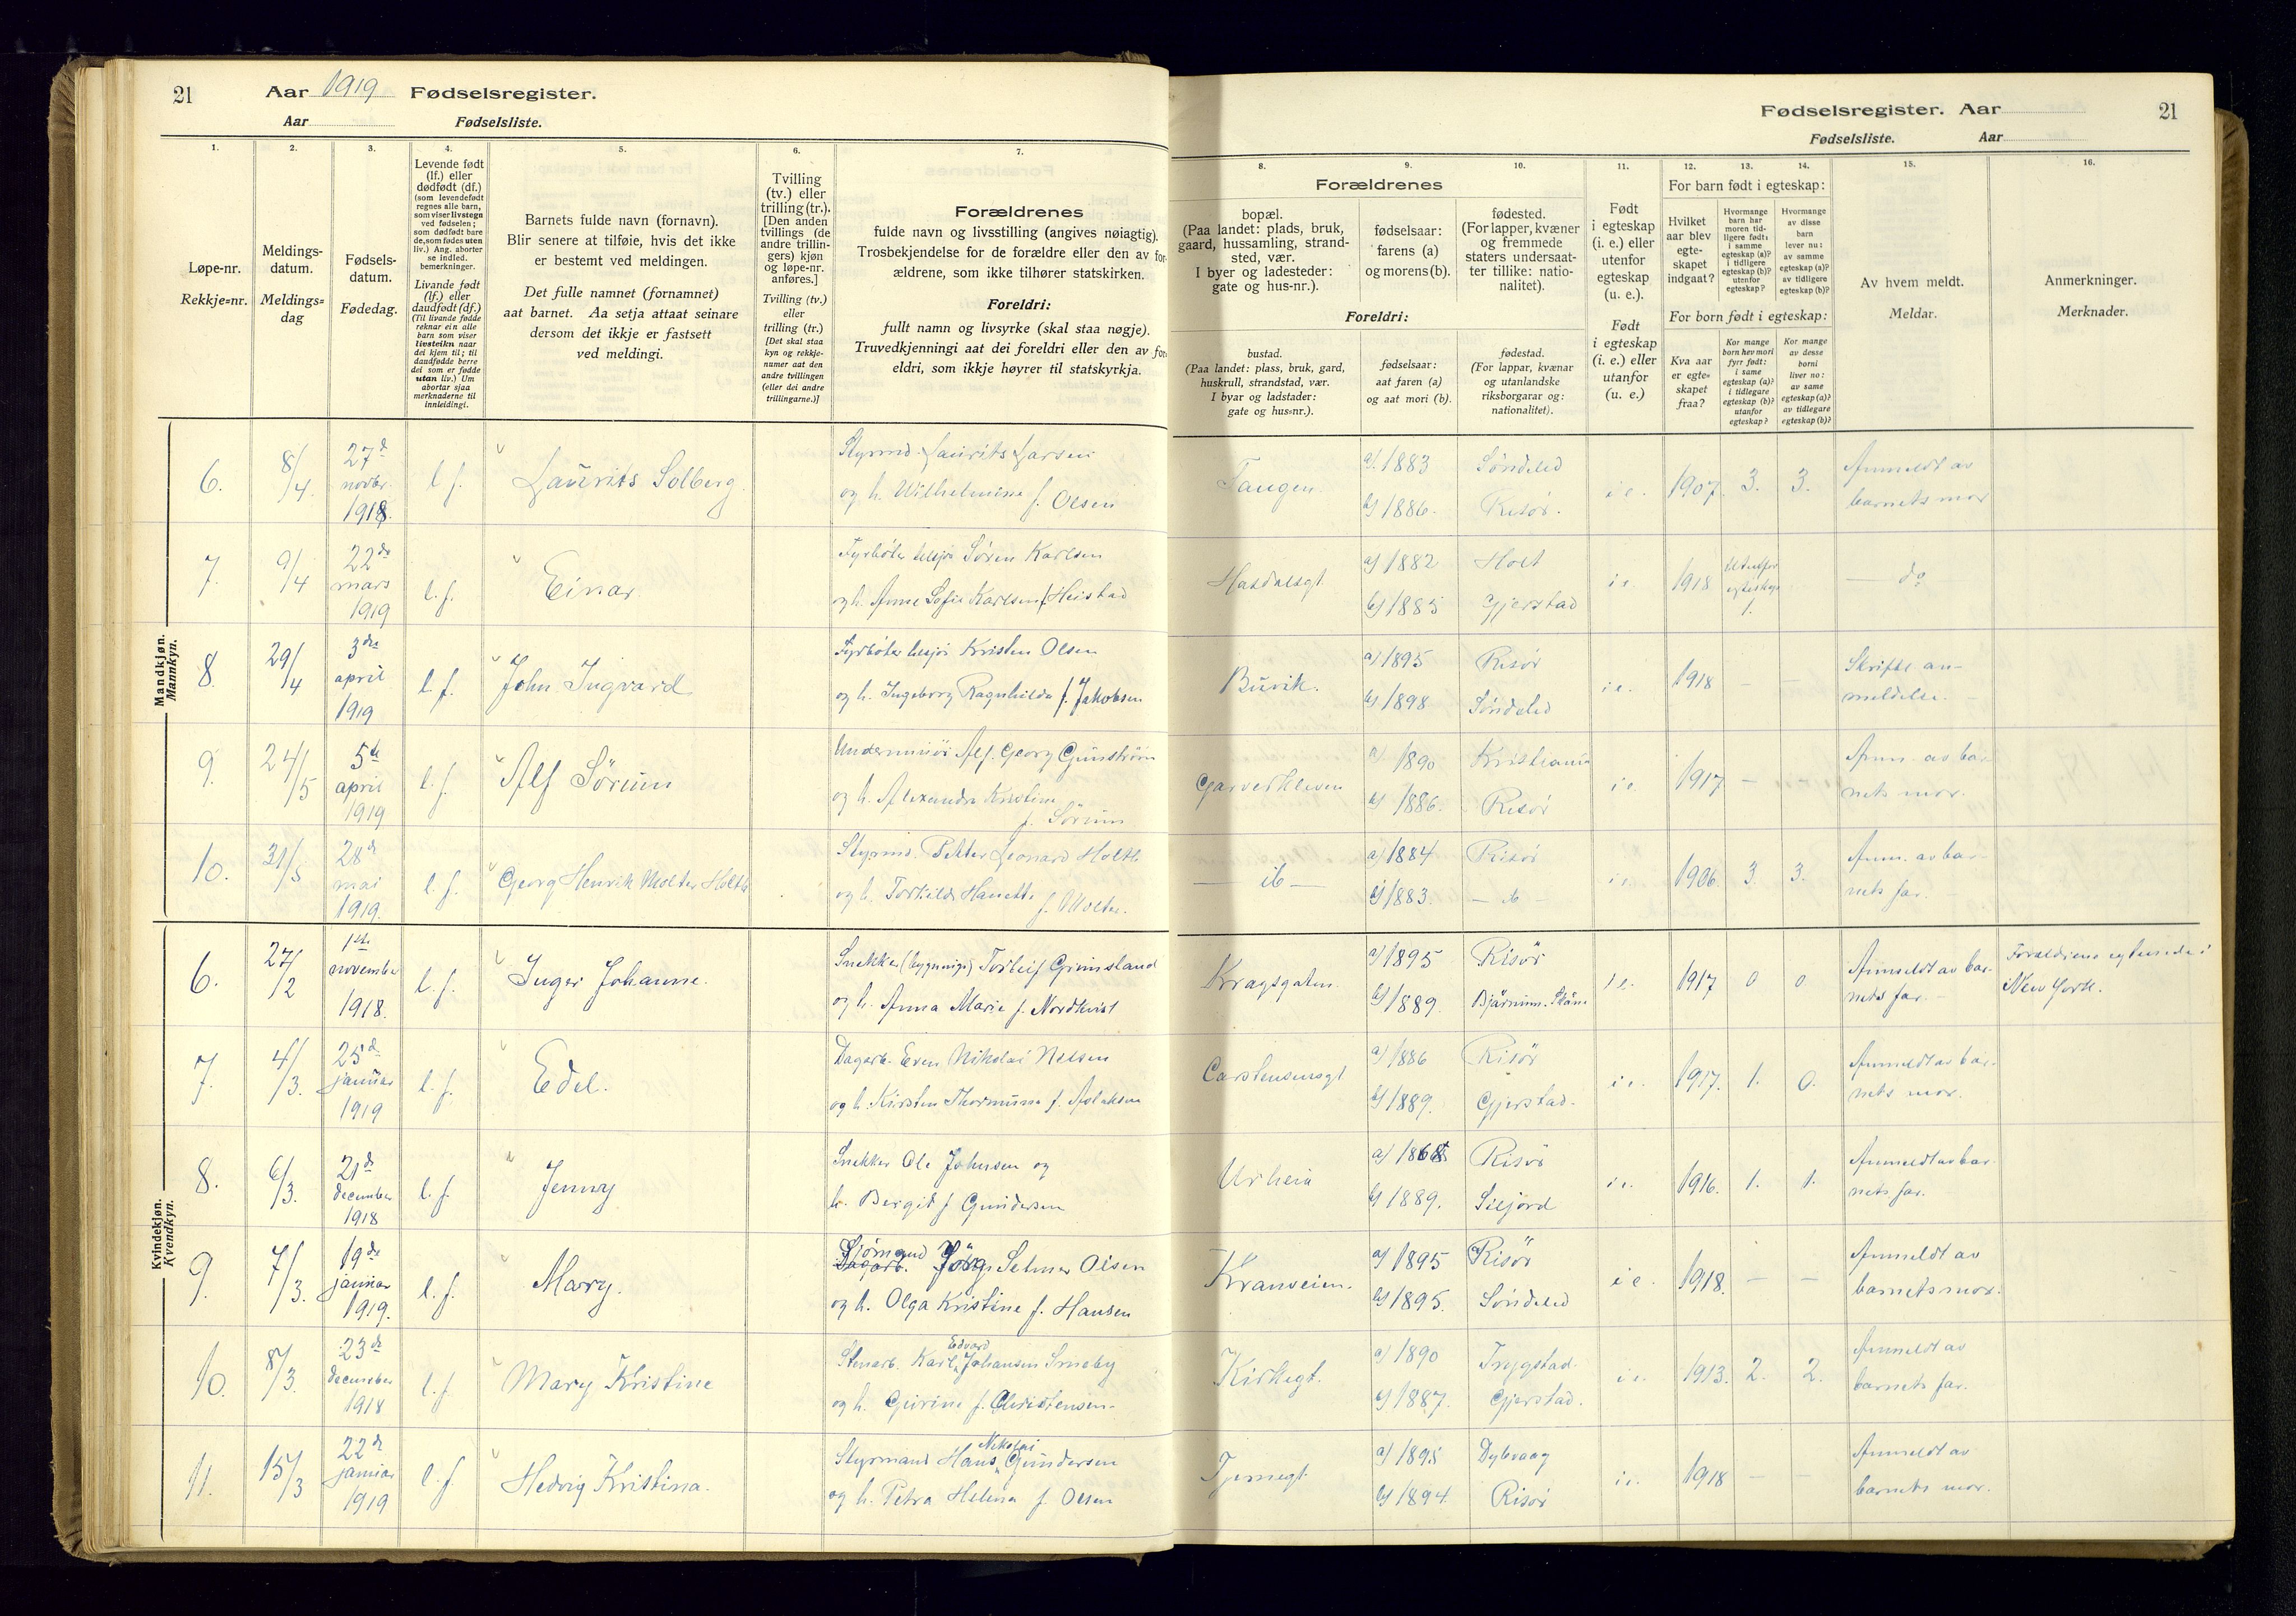 21
Aar 1919 Fødselsregister.
Aar Fødselsliste.
1.
Løpe-nr.
Rekkje-nr.
2.
Meldings-
datum.
Meldings-
dag
3.
Fødsels-
datum.
Fødedag.
4.
Levende født
(lf.) eller
dødfødt (df.)
(som levendefødt
regnes alle barn,
som viser livstegn
ved fødselen;
som dødfødt bare
de, som fødes uten
liv.) Ang. aborter
se indled.
bemerkninger.
Livande født
(lf.) eller
daudfødt (df.)
(Til livande fødde
reknar ein alle
barn som viser
livsteikn naar
dei kjem til; til
daudfødde berre
dei som er fødde
utan liv.) Um
abortar sjaa
merknaderne til
innleidingi.
5.
Barnets fulde navn (fornavn).
Blir senere at tilføie, hvis det ikke
er bestemt ved meldingen.
Det fulle namnet (fornamnet)
aat barnet. Aa setja attaat seinare
dersom det ikkje er fastsett
ved meldingi.
6.
Tvilling
(tv.) eller
trilling (tr.).
[Den anden
tvillings (de
andre trillin-
gers) kjøn
og løpe-nr.
anføres.]
Tvilling (tv.)
eller
trilling (tr.)
[Det skal staa
kyn og rekkje-
numer aat den
andre tvillingen
(eller dei andre
trillingarne.)]
7.
Forældrenes
fulde navn og livsstilling (angives nøiagtig).
Trosbekjendelse for de forældre eller den av for-
ældrene, som ikke tilhører statskirken.
Foreldri:
fullt namn og livsyrke (skal staa nøgje).
Truvedkjenningi aat dei foreldri eller den av for-
eldri, som ikkje høyrer til statskyrkja.
Mandkjøn.
Mannkyn.
6. 8/4. 27d novbr. 1918. l.f. Laurits Solberg.
Styrmd. Laurits Larsen
og h. Wilhelmine f. Olsen
7. 9/4 22de mars 1919 l.f. Einar
Fyrbøter tilsjøs Søren Karlsen
og h. Anne Sofie Karlsen f. Heistad
8. 29/4 3die april 1919 l.f. John Ingvard
Fyrbøter tilsjøs Kristen Olsen
og h. Ingeborg Ragnhilda f. Jakobsen
9. 24/5 5te april 1919 l.f. Alf Sörum
Underminør Alf. Georg Gunström
og h. Alexandra Kristine
f. Sörum
10. 31/5 28d mai 1919. l.f. Georg Henrik Molter Holth
Styrmd. Petter Leonard Holth
og h. Torhilde Hanette f. Molter.
Kvindekjøn.
Kvendkyn.
6. 27/2 1ste november 1918. l.f. Inger Johanne.
Snekker (bygnings) Torleif Grimsland
og h. Anna Marie f. Nordkvist
7. 4/3. 25d januar 1919 l.f. Edel.
Dagarb. Even Nikolai Nelsen
og h. Kirsten Thormine f. Aslaksen
8. 6/3. 21d december 1918 l.f. Jenny
Snekker Ole Johnsen og
h. Bergit f Gundersen
9. 7/3. 19de januar 1919. l.f. Mary.
Sjömand
Dagarb. Jörg. Selmer Olsen
og h. Olga Kristine f. Hansen
10. 8/3. 23d december 1918 l.f. Mary Kristine
Edvard
Stenarb. Karl Johansen Smeby
og h. Gurine f. Christensen.
11. 15/3 22d januar 1919 l.f. Hedvig Kristina.
Nikolai
Styrmand Hans Gundersen
og h. Petra Helene f. Olsen
Fødselsregister. Aar 21
Fødselsliste. Aar
8.
Forældrenes
bopæl.
(Paa landet: plads, bruk,
gaard, hussamling, strand-
sted, vær.
I byer og ladesteder:
gate og hus-nr.).
Foreldri:
bustad.
(Paa landet: plass, bruk, gard,
huskrull, strandstad, vær.
I byar og ladstader:
gate og hus-nr.).
9.
fødselsaar:
farens (a)
og morens (b).
fødselsaar:
aat faren (a)
og aat mori (b).
10.
fødested.
(For lapper, kvæner
og fremmede
staters undersaat-
ter tillike: natio-
nalitet).
fødestad.
(For lappar, kvænar
og utanlandske
riksborgarar og:
nationalitet).
11.
Født
i egteskap
(i. e.) eller
utenfor
egteskap
(u. e.).
Født
i egteskap
(i. e.) eller
utanfor
(u. e.)
For barn født i egteskap:
12.
Hvilket
aar blev
egte-
skapet
indgaat?
13.
Hvormange
barn har
moren tid-
ligere født:
i samme
egteskap (a)?
i tidligere
egteskap (b)?
utenfor
egteskap?
14.
Hvormange
av disse
barn
lever nu:
av samme
egteskap (a)?
av tidligere
egteskap (b)?
For born født i egteskap:
Kva aar
er egte-
skapet
fraa?
Kor mange
born hev mori
fyrr født:
i same
egteskap (a)?
i tidlegare
egteskap (b)?
utanfor
egteskap?
Kor mange
av desse
borni
liver no:
av same
egteskap (a)?
av tidlegare
egteskap (b)?
15.
Av hvem meldt.
Meldar.
16.
Anmerkninger.
Merknader.
Tangen. a) 1883 Söndeled i e. 1907. 3. 3. Anmeldt av
b) 1886. Risör. barnets mor
Hasdalsgt a) 1882 Holt i e. 1918 Utenfor egteskap 1. — do
b) 1885 Gjerstad
Buvik. a) 1895 Risör i e. 1918 — — Skriftl. an-
b) 1898 Söndeled meldelse.
Garverkleven a) 1890 Kristiania i e. 1917 — Anm. av bar-
b) 1886. Risör nets mor.
— do — a) 1884 Risör i e. 1906 3. 3. Anm. av bar-
b) 1883. — do — nets far.
Kragsgaten. a) 1895 Risör i e. 1917 0 0 Anmeldt av bar- Forældrene egteviede i
b) 1889. Bjärnum. Skåne nets far. New York.
Carstensensgt a) 1886 Risör i e. 1917. 1. 0. Anmeldt av bar-
b) 1889. Gjerstad. nets mor.
Urheia a) 1868 Risör i e. 1916. 1. 1. Anmeldt av bar-
b) 1889. Siljord nets far.
Kranveien. a) 1895 Risör i e. 1918. — — Anmeldt av
b) 1895. Söndeled barnets mor.
Kirkegt. a) 1890 Trygstad. i e. 1913. 2. 2. Anmeldt av
b) 1887. Gjerstad. barnets far.
Tjennegt. a) 1895 Dybvaag i e. 1918 — — Anmeldt av
b) 1894 Risör barnets mor.